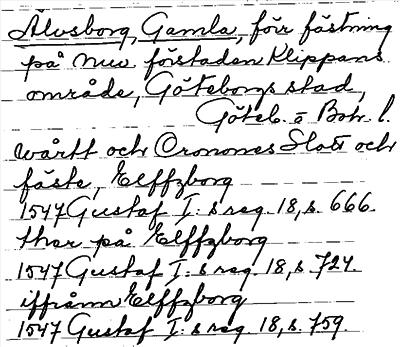 Älvsborg, Gamla, förr fästning
på nuv. förstaden Klippans
område, Göteborgs stad,
Göteb. o Boh. l.
wårtt och Cronones Slott och
fäste, Elffzborg
1547 Gustaf I:s reg. 18, s. 666.
ther på Elffzborg
1547 Gustaf I:s reg. 18, s. 724.
iffrånn Elffzborg
1547 Gustaf I:s reg. 18, s. 759.